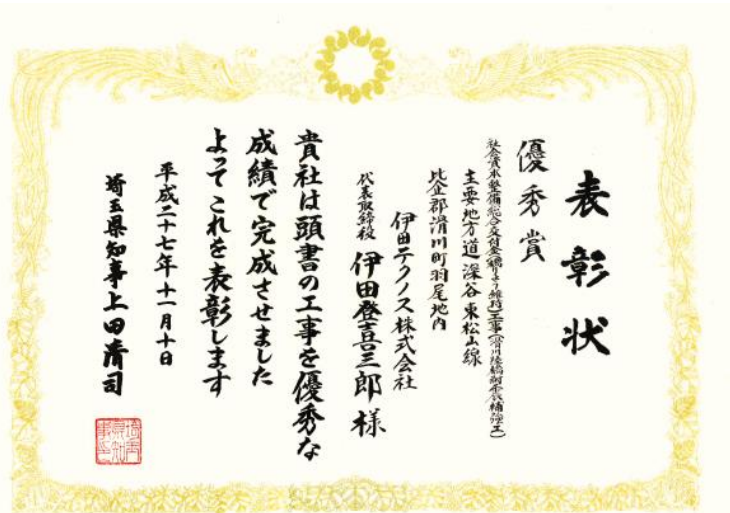 表彰状
優秀賞
社会資本整備総合交付金(橋りょう維持)工事(滑川陸橋耐震補強工)
主要地方道深谷東松山線
比企郡滑川町羽尾地内
伊田テクノス株式会社
代表取締役 伊田登喜三郎 様
貴社は頭書の工事を優秀な
成績で完成させました
よってこれを表彰します
平成二十七年十一月十日
埼玉県知事上田清司